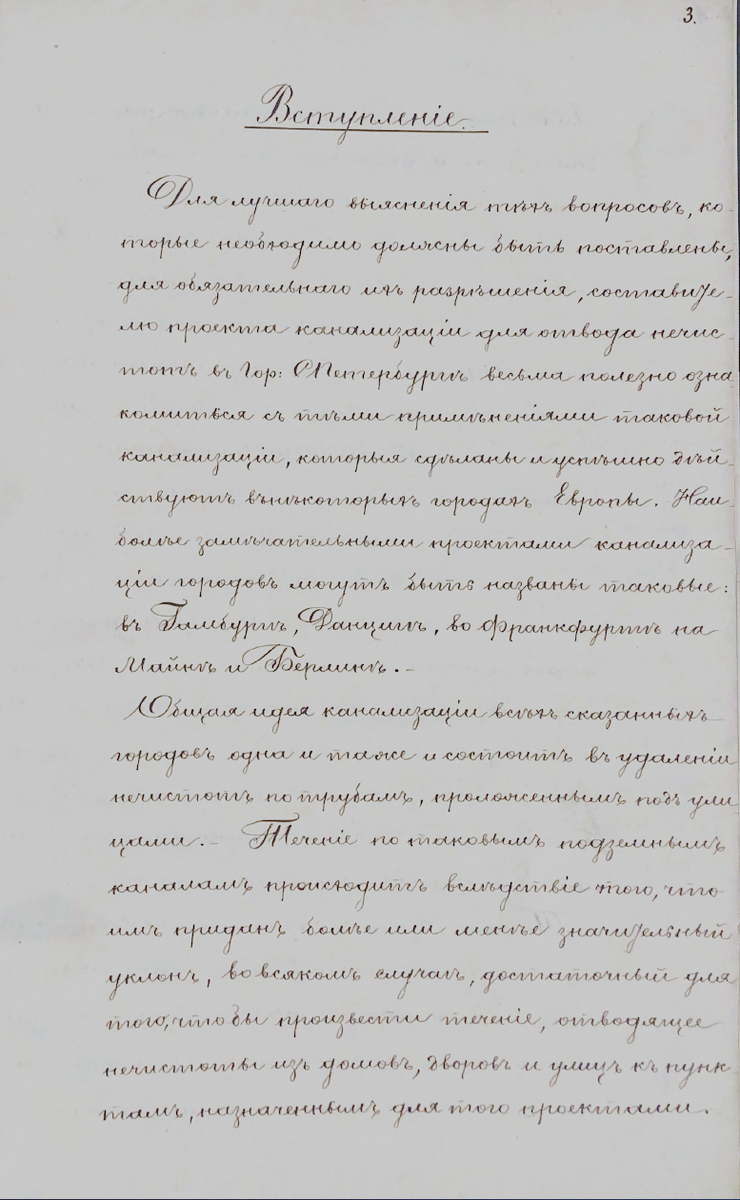 3.
Вступленіе.
Для лучшаго выясненія тѣхъ вопросовъ, ко-
торые необходимо должны быть поставлены,
для обязательнаго ихъ разрѣшенія, составите-
лю проекта канализаціи для отвода нечис-
тотъ въ Гор: СПетербургѣ весьма полезно озна-
комиться съ тѣми примѣненіями таковой
канализаціи, которыя сдѣланы и успѣшно дѣй-
ствуютъ въ нѣкоторыхъ городахъ Европы. Наи-
болѣе замѣчательными проектами канализа-
ціи городовъ могутъ быть названы таковые:
въ Гамбургѣ, Данцигѣ, во Франкфуртѣ на
Майнѣ и Берлинѣ. –
Общая идея канализаціи всѣхъ сказанныхъ
городовъ одна и таже и состоитъ въ удаленіи
нечистотъ по трубамъ, проложеннымъ подъ ули
цами. – Теченіе по таковымъ подземнымъ
каналамъ происходитъ вслѣдствіе того, что
имъ приданъ болѣе или менѣе значительный
уклонъ, во всякомъ случаѣ, достаточный для
того, что бы произвести теченіе, отводящее
нечистоты изъ домовъ, дворовъ и улицъ къ пунк
тамъ, назначеннымъ для того проектами.